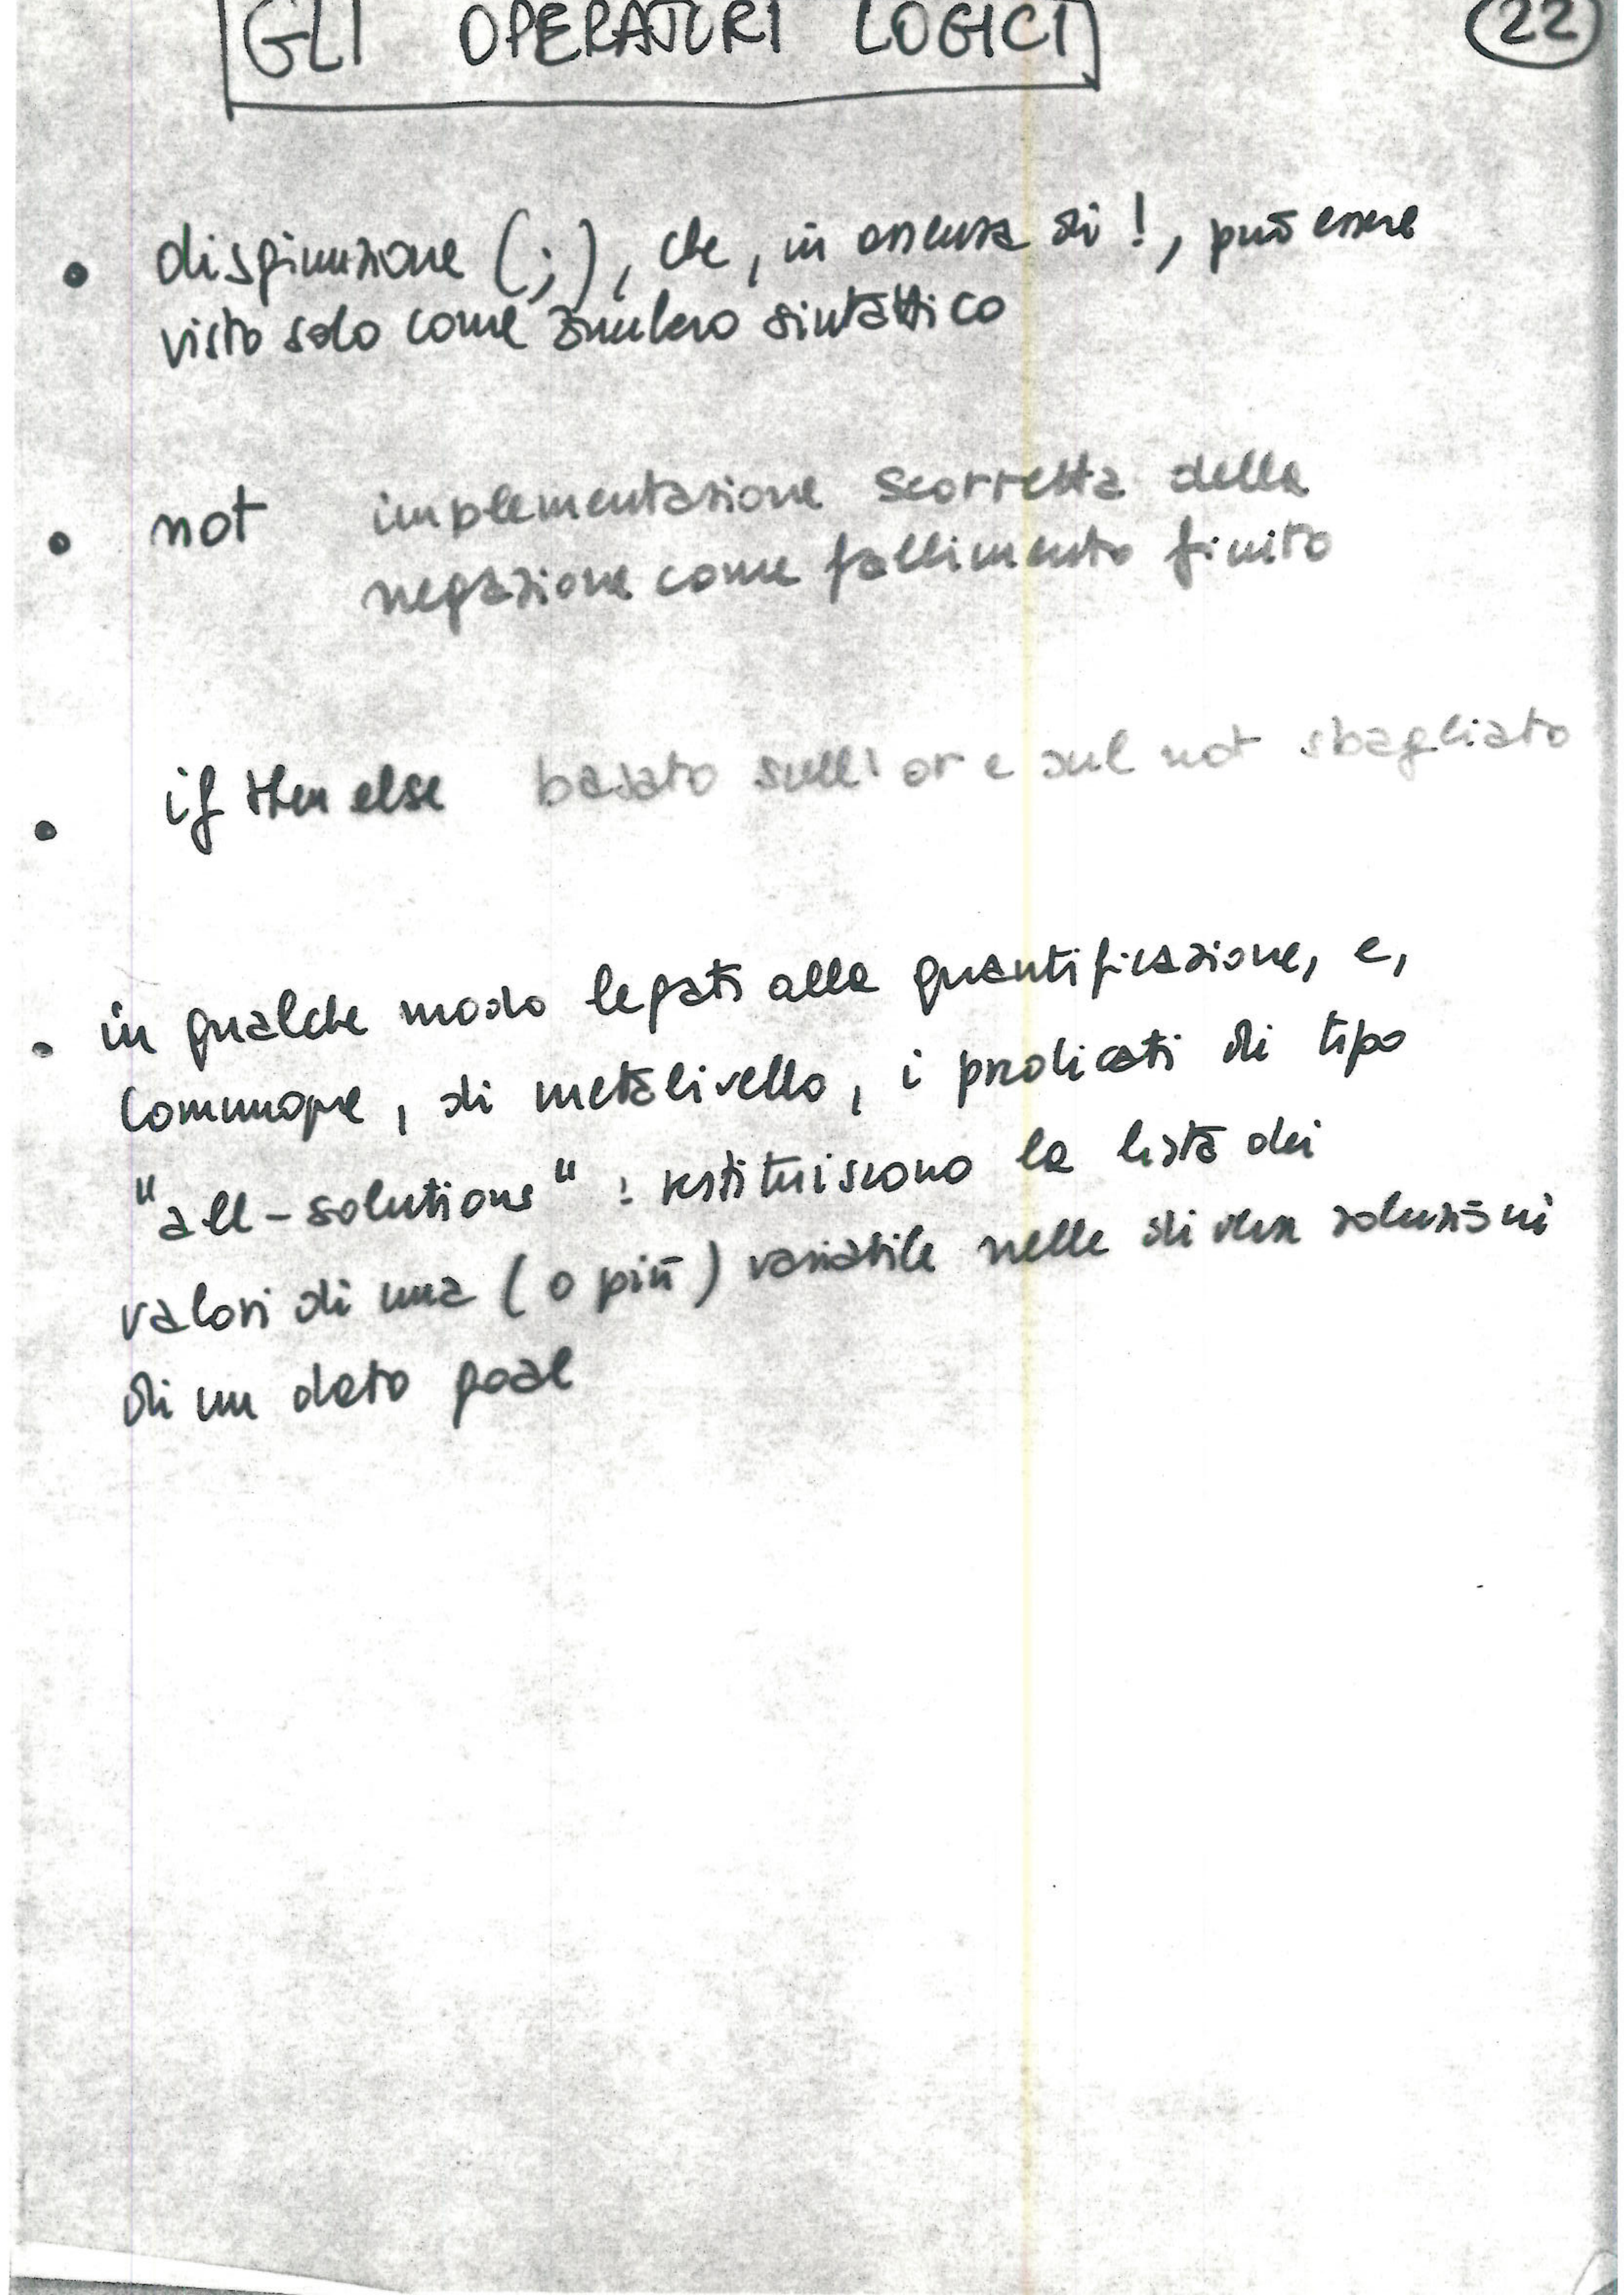 GLI OPERATORI LOGICI
22
• disgiunzione (;), che, in assenza di !, può essere
visto solo come zucchero sintattico
• not implementazione scorretta della
negazione come fallimento finito
• if then else basato sull'or e sul not sbagliato
• in qualche modo legati alla quantificazione, e,
comunque, di metalivello, i predicati di tipo
"all-solutions" : restituiscono la lista dei
valori di una (o più) variabile nelle diverse soluzioni
di un dato goal